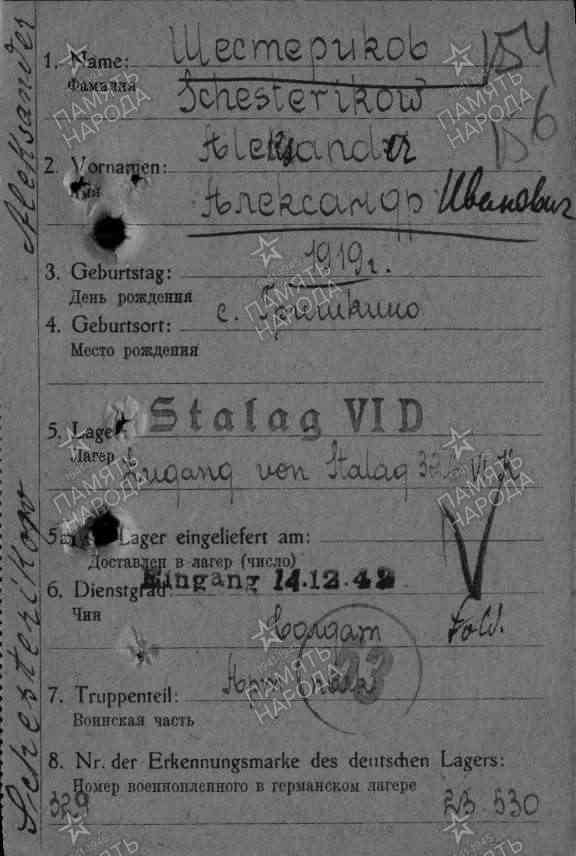 Aleksander
Schesterikow
1. Name: Шестериков
Фамилия Schesterikow
Aleksander
2. Vornamen:
Имя Александр Иванович
3. Geburtstag: 1919 г.
День рождения
4. Geburtsort: с. Гришкино
Место рождения
5. Lager Stalag VI D
Лагер Zugang von Stalag VI K
5a Lager eingeliefert am:
Доставлен в лагер (число)
Eingang 14.12.42
6. Dienstgrad:
Чин Солдат
23
7. Truppenteil:
Воинская часть
8. Nr. der Erkennungsmarke des deutschen Lagers:
Номер военнопленного в германском лагере
329 23 530
ПАМЯТЬ НАРОДА